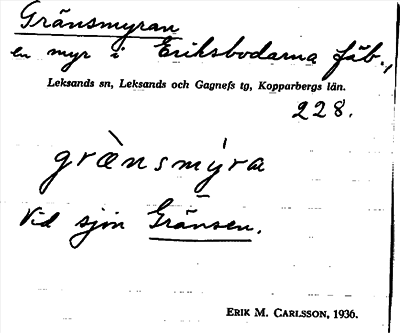 Gränsmyran
en myr i Eriksbodarna fäb.,
Leksands sn, Leksands och Gagnefs tg, Kopparbergs län.
228.
grὲnsmýra
Vid sjön Gränsen.
ERIK M. CARLSSON, 1936.